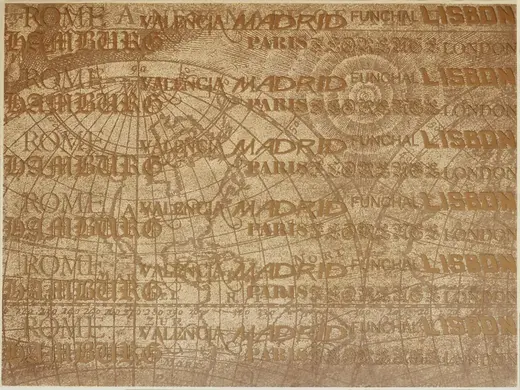 ROME VALENCIA MADRID FUNCHAL LISBON
HAMBURG PARIS FLORENCE LONDON
ROME VALENCIA MADRID FUNCHAL LISBON
HAMBURG PARIS FLORENCE LONDON
ROME VALENCIA MADRID FUNCHAL LISBON
HAMBURG PARIS FLORENCE LONDON
ROME VALENCIA MADRID FUNCHAL LISBON
HAMBURG PARIS FLORENCE LONDON
ROME VALENCIA MADRID FUNCHAL LISBON
HAMBURG PARIS FLORENCE LONDON
ROME VALENCIA MADRID FUNCHAL LISBON
HAMBURG PARIS FLORENCE LONDON